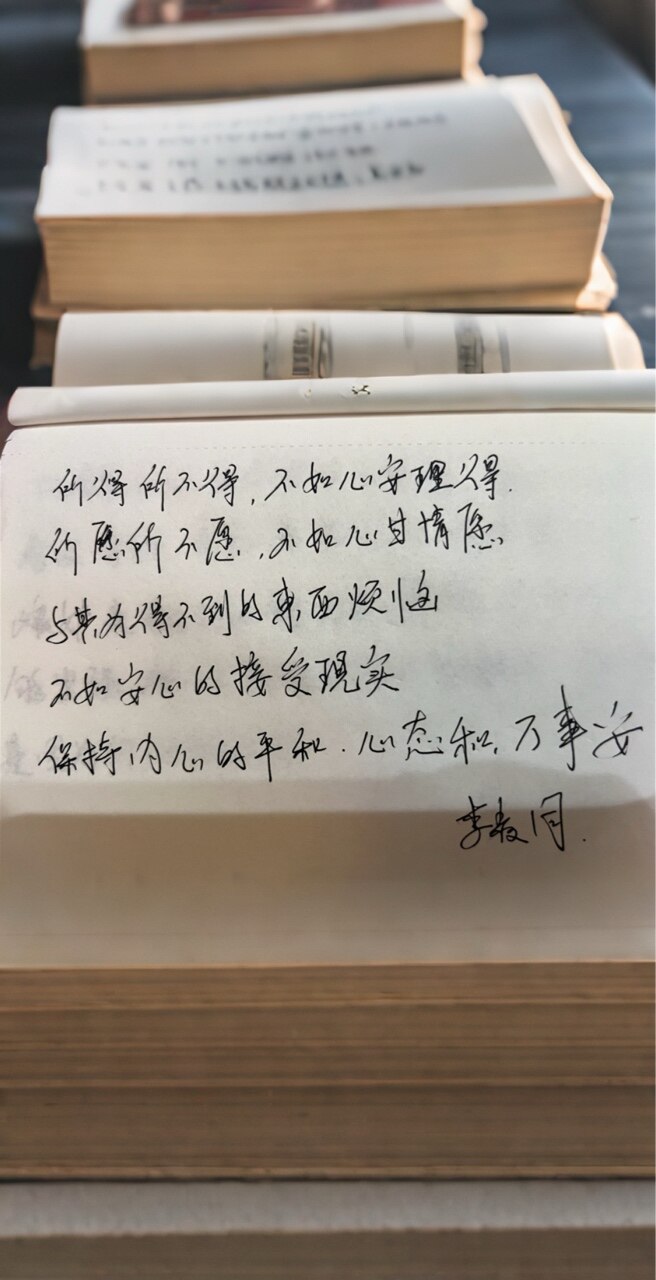 所得所不得，不如心安理得.
所愿所不愿，不如心甘情愿
与其为得不到的东西烦恼
不如安心的接受現实
保持内心的平和.心态和,万事安
李叔同.